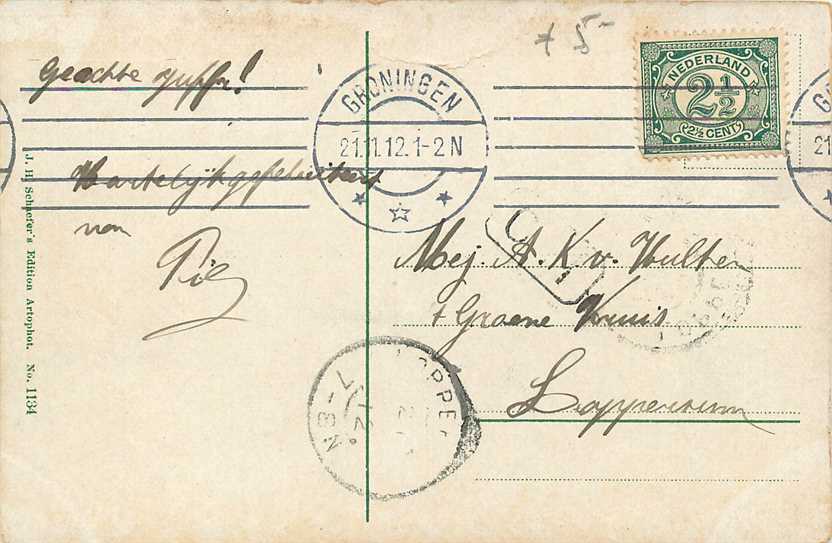 * 5-
Geachte juffr!
Hartelijk gefeliciteert
van
Piet
GRONINGEN
21.11.12.1-2 N
NEDERLAND
2½
2½ CENT
GR
21
Mej A. K. v. Hulten
't Groene Kruis
Loppersum
LOPPE
7-8 N
12
J. H. Schaefer's Edition Artophot. No. 1134